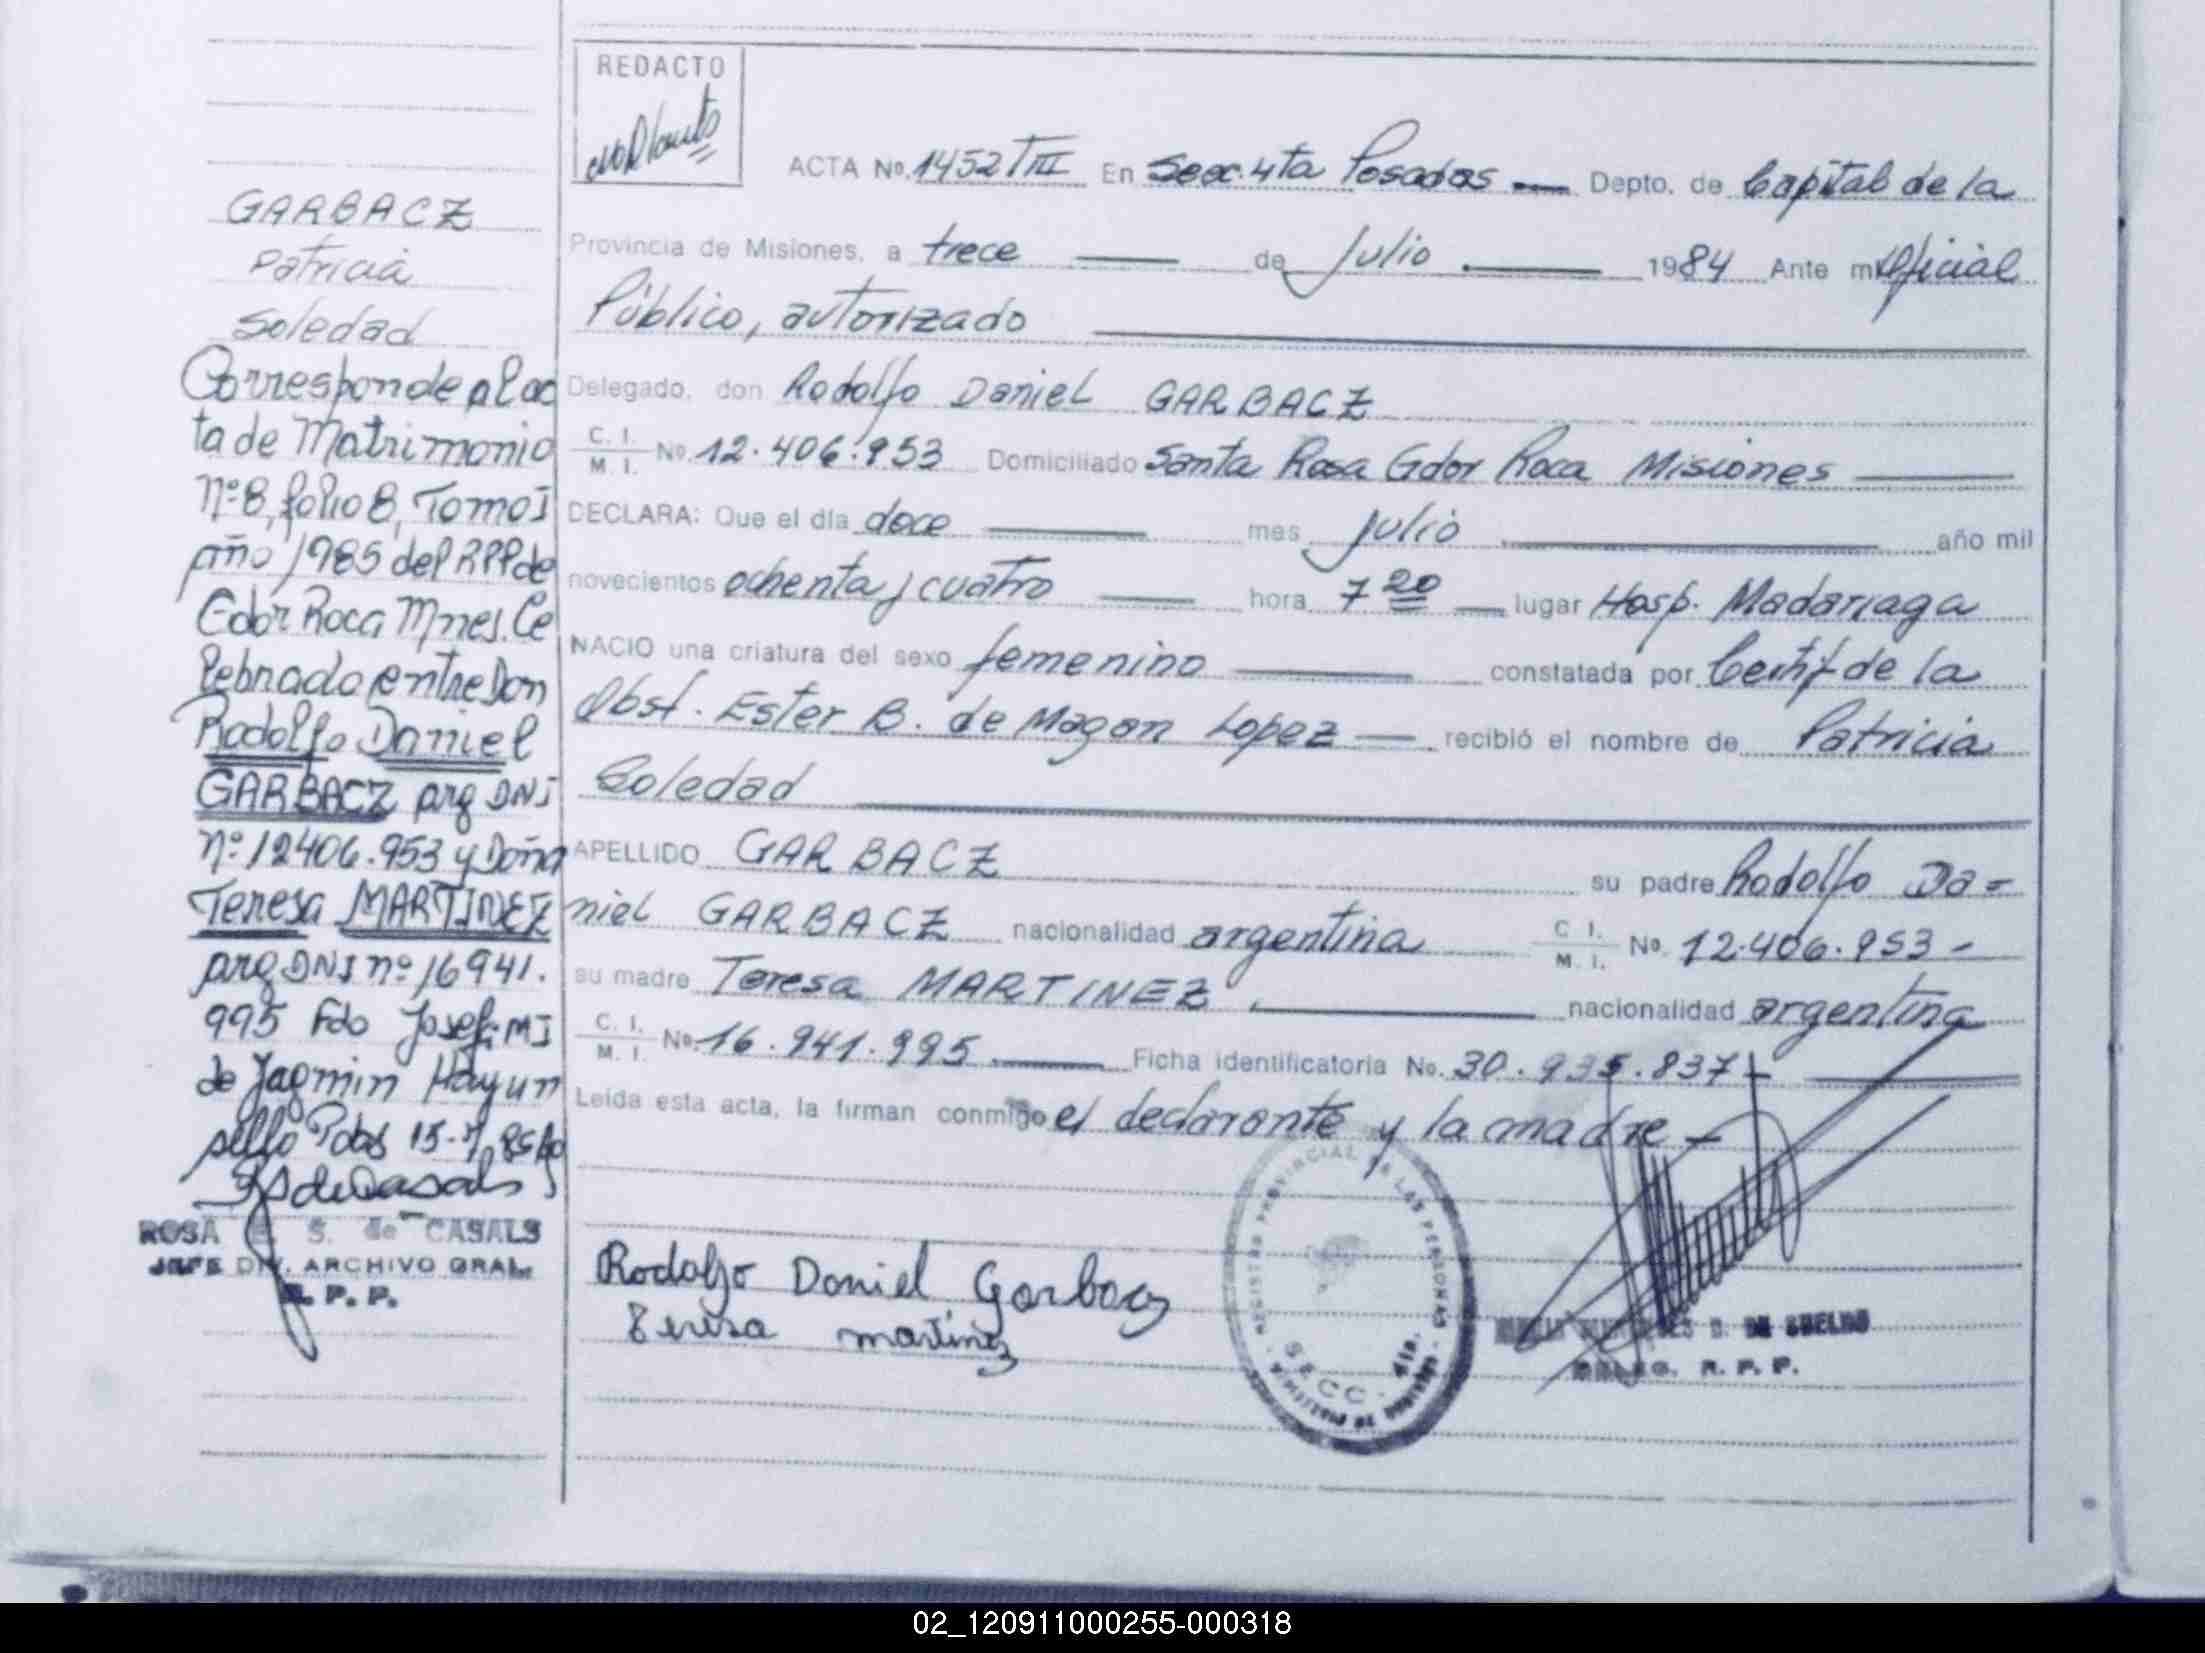 REDACTO
ACTA No. 1452 T III En Secc. 4ta Posadas Depto. de Capital de la
Provincia de Misiones, a trece de Julio 1984 Ante mi Oficial
Público, autorizado
Delegado, don Rodolfo Daniel GARBACZ
C. I.
M. I. No. 12.406.953 Domiciliado Santa Rosa Gdor Roca Misiones
DECLARA: Que el día doce mes Julio año mil
novecientos ochenta y cuatro hora 7 20 lugar Hosp. Madariaga
NACIO una criatura del sexo femenino constatada por Certif de la
Obst. Ester B. de Magan Lopez recibió el nombre de Patricia
Soledad
APELLIDO GARBACZ su padre Rodolfo Da=
niel GARBACZ nacionalidad argentina C I. M. I. No. 12.406.953-
su madre Teresa MARTINEZ, nacionalidad argentina
C. I.
M. I. No. 16.941.995. Ficha identificatoria No. 30.935.837-
Leída esta acta, la firman conmigo el declarante y la madre-
Rodolfo Daniel Garbacz
Teresa martinez
REGISTRO PROVINCIAL DE LAS PERSONAS
SECC. 4ta.
DELEG. R. P. P.
GARBACZ
Patricia
Soledad
Corresponde al ac
ta de Matrimonio
Nº 8, folio 8, Tomo I
año 1985 del RPP de
Gdor Roca Mnes. Ce
lebrado entre Don
Rodolfo Daniel
GARBACZ arg DNI
Nº 12406.953 y Doña
Teresa MARTINEZ
arg DNI nº 16941.
995 Fdo Josef. MI
de Jagmin Hay un
sello Pdas 15-7-85
ROSA E. S. de CASALS
JEFE DIV. ARCHIVO GRAL.
R. P. P.
02_120911000255-000318